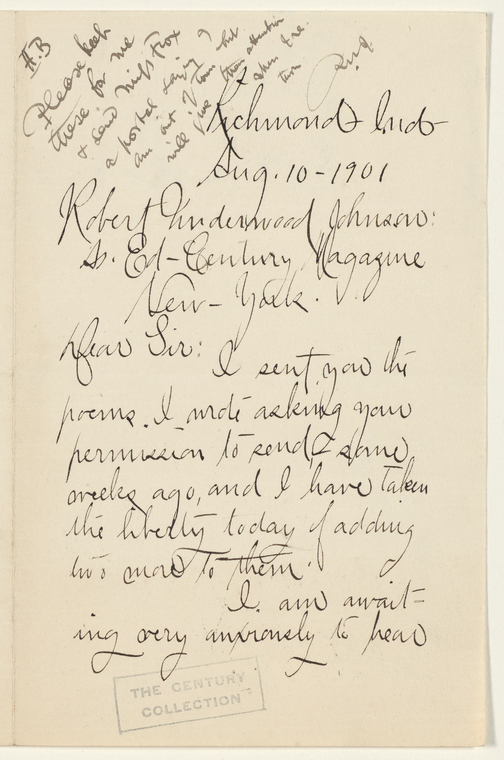 A.B
Please keep
these for me
& send Miss Fox
a postal saying I
am out of town but
will give them attention
when I re-
turn
RUJ
Richmond Ind-
Aug. 10-1901
Robert Underwood Johnson:
As. Ed-Century Magazine
New-York.
Dear Sir:
I sent you the
poems, I wrote asking your
permission to send, some
weeks ago, and I have taken
the liberty today of adding
two more to them.
I am await=
ing very anxiously to hear
THE CENTURY
COLLECTION